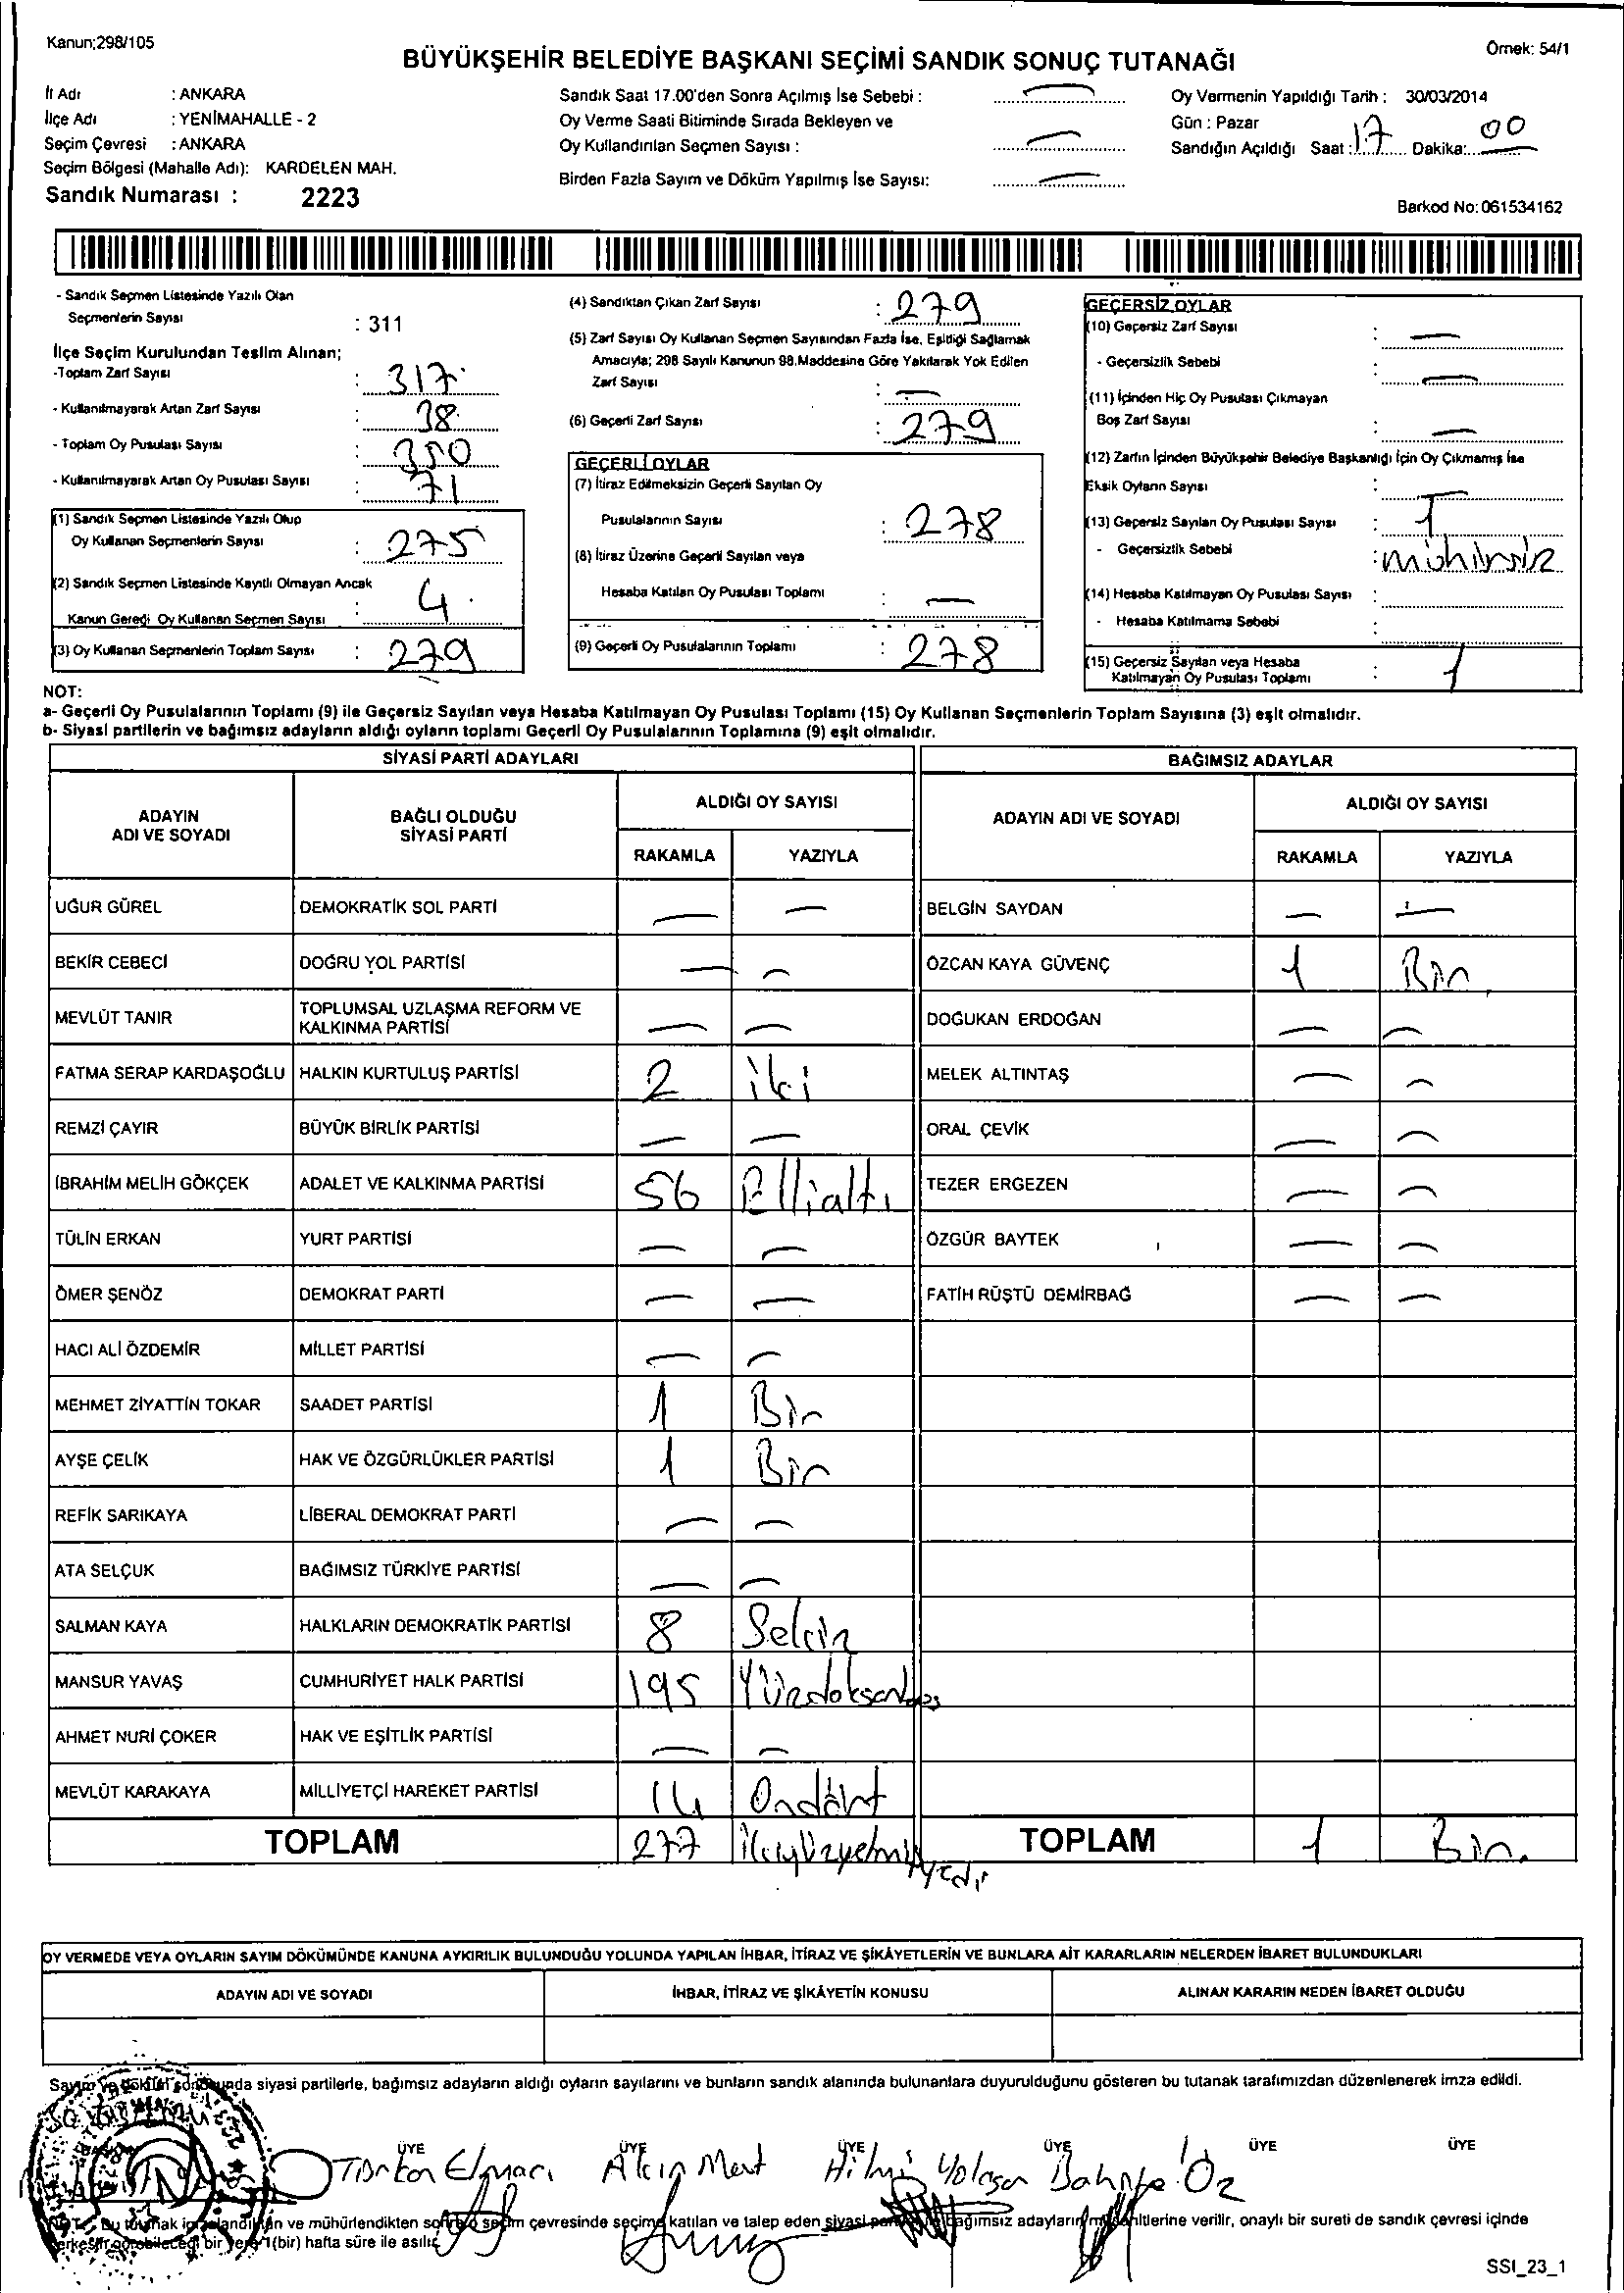 Kanun;298/105
Örnek: 54/1
BÜYÜKŞEHİR BELEDİYE BAŞKANI SEÇİMİ SANDIK SONUÇ TUTANAĞI
İl Adı : ANKARA
İlçe Adı : YENİMAHALLE - 2
Seçim Çevresi : ANKARA
Seçim Bölgesi (Mahalle Adı): KARDELEN MAH.
Sandık Numarası : 2223
Sandık Saat 17.00'den Sonra Açılmış İse Sebebi : —
Oy Verme Saati Bitiminde Sırada Bekleyen ve
Oy Kullandırılan Seçmen Sayısı : —
Birden Fazla Sayım ve Döküm Yapılmış İse Sayısı: —
Oy Vermenin Yapıldığı Tarih : 30/03/2014
Gün : Pazar
Sandığın Açıldığı Saat : 17 Dakika: 00
Barkod No: 061534162
- Sandık Seçmen Listesinde Yazılı Olan
Seçmenlerin Sayısı : 311
İlçe Seçim Kurulundan Teslim Alınan;
-Toplam Zarf Sayısı : 317
- Kullanılmayarak Artan Zarf Sayısı : 38
- Toplam Oy Pusulası Sayısı : 350
- Kullanılmayarak Artan Oy Pusulası Sayısı : 71
(1) Sandık Seçmen Listesinde Yazılı Olup
Oy Kullanan Seçmenlerin Sayısı : 275
(2) Sandık Seçmen Listesinde Kayıtlı Olmayan Ancak
Kanun Gereği Oy Kullanan Seçmen Sayısı : 4
(3) Oy Kullanan Seçmenlerin Toplam Sayısı : 279
(4) Sandıktan Çıkan Zarf Sayısı : 279
(5) Zarf Sayısı Oy Kullanan Seçmen Sayısından Fazla İse, Eşitliği Sağlamak
Amacıyla; 298 Sayılı Kanunun 98.Maddesine Göre Yakılarak Yok Edilen
Zarf Sayısı : —
(6) Geçerli Zarf Sayısı : 279
GEÇERLİ OYLAR
(7) İtiraz Edilmeksizin Geçerli Sayılan Oy
Pusulalarının Sayısı : 278
(8) İtiraz Üzerine Geçerli Sayılan veya
Hesaba Katılan Oy Pusulası Toplamı : —
(9) Geçerli Oy Pusulalarının Toplamı : 278
GEÇERSİZ OYLAR
(10) Geçersiz Zarf Sayısı : —
- Geçersizlik Sebebi : —
(11) İçinden Hiç Oy Pusulası Çıkmayan
Boş Zarf Sayısı : —
(12) Zarfın İçinden Büyükşehir Belediye Başkanlığı İçin Oy Çıkmamış İse
Eksik Oyların Sayısı : —
(13) Geçersiz Sayılan Oy Pusulası Sayısı : 1
- Geçersizlik Sebebi : mühürsüz
(14) Hesaba Katılmayan Oy Pusulası Sayısı :
- Hesaba Katılmama Sebebi :
(15) Geçersiz Sayılan veya Hesaba
Katılmayan Oy Pusulası Toplamı : 1
NOT:
a- Geçerli Oy Pusulalarının Toplamı (9) ile Geçersiz Sayılan veya Hesaba Katılmayan Oy Pusulası Toplamı (15) Oy Kullanan Seçmenlerin Toplam Sayısına (3) eşit olmalıdır.
b- Siyasi partilerin ve bağımsız adayların aldığı oyların toplamı Geçerli Oy Pusulalarının Toplamına (9) eşit olmalıdır.
SİYASİ PARTİ ADAYLARI
ADAYIN ADI VE SOYADI BAĞLI OLDUĞU SİYASİ PARTİ ALDIĞI OY SAYISI
RAKAMLA YAZIYLA
UĞUR GÜREL DEMOKRATİK SOL PARTİ — —
BEKİR CEBECİ DOĞRU YOL PARTİSİ — —
MEVLÜT TANIR TOPLUMSAL UZLAŞMA REFORM VE KALKINMA PARTİSİ — —
FATMA SERAP KARDAŞOĞLU HALKIN KURTULUŞ PARTİSİ 2 iki
REMZİ ÇAYIR BÜYÜK BİRLİK PARTİSİ — —
İBRAHİM MELİH GÖKÇEK ADALET VE KALKINMA PARTİSİ 56 Ellialtı
TÜLİN ERKAN YURT PARTİSİ — —
ÖMER ŞENÖZ DEMOKRAT PARTİ — —
HACI ALİ ÖZDEMİR MİLLET PARTİSİ — —
MEHMET ZİYATTİN TOKAR SAADET PARTİSİ 1 Bir
AYŞE ÇELİK HAK VE ÖZGÜRLÜKLER PARTİSİ 1 Bir
REFİK SARIKAYA LİBERAL DEMOKRAT PARTİ — —
ATA SELÇUK BAĞIMSIZ TÜRKİYE PARTİSİ — —
SALMAN KAYA HALKLARIN DEMOKRATİK PARTİSİ 8 Sekiz
MANSUR YAVAŞ CUMHURİYET HALK PARTİSİ 195 Yüzdoksanbeş
AHMET NURİ ÇOKER HAK VE EŞİTLİK PARTİSİ — —
MEVLÜT KARAKAYA MİLLİYETÇİ HAREKET PARTİSİ 14 Ondört
TOPLAM 277 ikiyüzyetmişyedi
BAĞIMSIZ ADAYLAR
ADAYIN ADI VE SOYADI ALDIĞI OY SAYISI
RAKAMLA YAZIYLA
BELGİN SAYDAN — —
ÖZCAN KAYA GÜVENÇ 1 Bir
DOĞUKAN ERDOĞAN — —
MELEK ALTINTAŞ — —
ORAL ÇEVİK — —
TEZER ERGEZEN — —
ÖZGÜR BAYTEK — —
FATİH RÜŞTÜ DEMİRBAĞ — —
TOPLAM 1 Bir.
OY VERMEDE VEYA OYLARIN SAYIM DÖKÜMÜNDE KANUNA AYKIRILIK BULUNDUĞU YOLUNDA YAPILAN İHBAR, İTİRAZ VE ŞİKÂYETLERİN VE BUNLARA AİT KARARLARIN NELERDEN İBARET BULUNDUKLARI
ADAYIN ADI VE SOYADI İHBAR, İTİRAZ VE ŞİKÂYETİN KONUSU ALINAN KARARIN NEDEN İBARET OLDUĞU
Sayım ve döküm sonucunda siyasi partilerle, bağımsız adayların aldığı oyların sayılarını ve bunların sandık alanında bulunanlara duyurulduğunu gösteren bu tutanak tarafımızdan düzenlenerek imza edildi.
BAŞKAN ÜYE ÜYE ÜYE ÜYE ÜYE ÜYE
Elmacı Mert Hilmi Öz
NOT: Bu tutanak imzalandıktan ve mühürlendikten sonra o seçim çevresinde seçime katılan ve talep eden siyasi parti ve bağımsız adayların müşahitlerine verilir, onaylı bir sureti de sandık çevresi içinde
herkesin görebileceği bir yere 1(bir) hafta süre ile asılır.
SSI_23_1